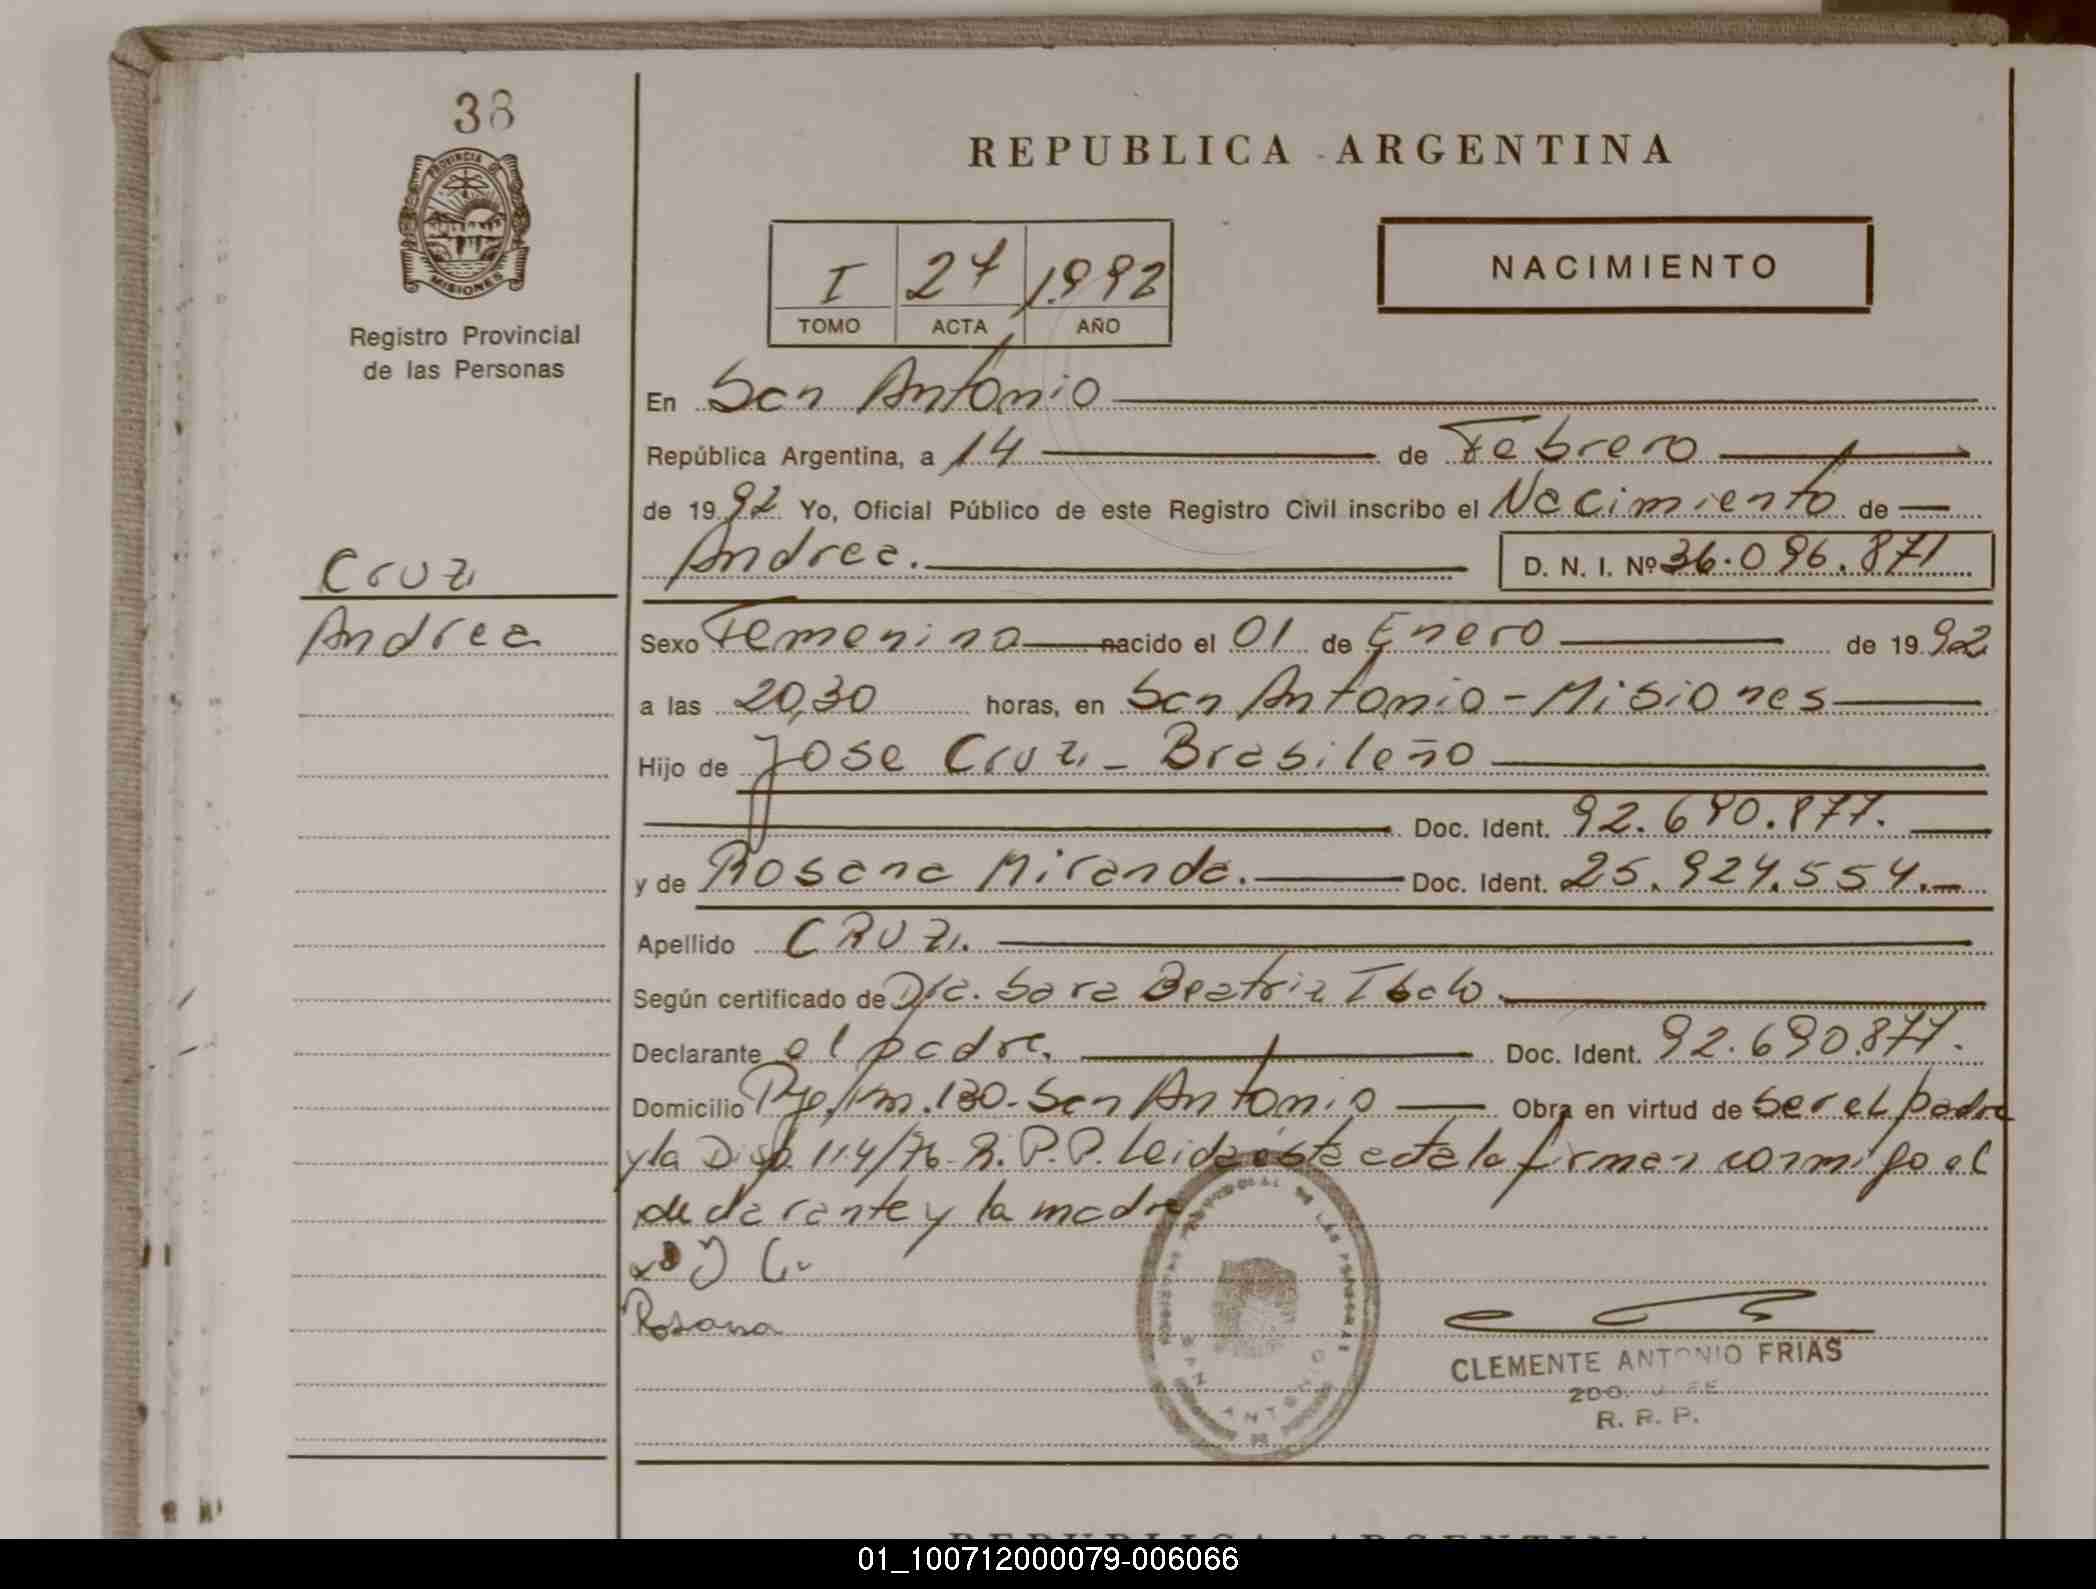 38
PROVINCIA DE
MISIONES
Registro Provincial
de las Personas
Cruz
Andrea
REPUBLICA ARGENTINA
I 27 1.992
TOMO ACTA AÑO
NACIMIENTO
En San Antonio
República Argentina, a 14 de Febrero
de 1992 Yo, Oficial Público de este Registro Civil inscribo el Nacimiento de
Andrea. D. N. I. Nº 36.096.871
Sexo Femenino nacido el 01 de Enero de 1992
a las 20,30 horas, en San Antonio - Misiones
Hijo de Jose Cruz - Brasileño
Doc. Ident. 92.690.877.
y de Rosana Miranda. Doc. Ident. 25.924.554.
Apellido CRUZ.
Según certificado de Dra. Sara Beatriz
Declarante el padre. Doc. Ident. 92.690.877.
Domicilio Pje. Km. 130 - San Antonio Obra en virtud de ser el padre
y la Disp. 114/76 - R. P. P. Leida ésta acta la firman conmigo el
declarante y la madre
J C
Rosana
PROVINCIAL DE LAS PERSONAS
SAN ANTONIO
CLEMENTE ANTONIO FRIAS
R. R. P.
REPUBLICA ARGENTINA
01_100712000079-006066